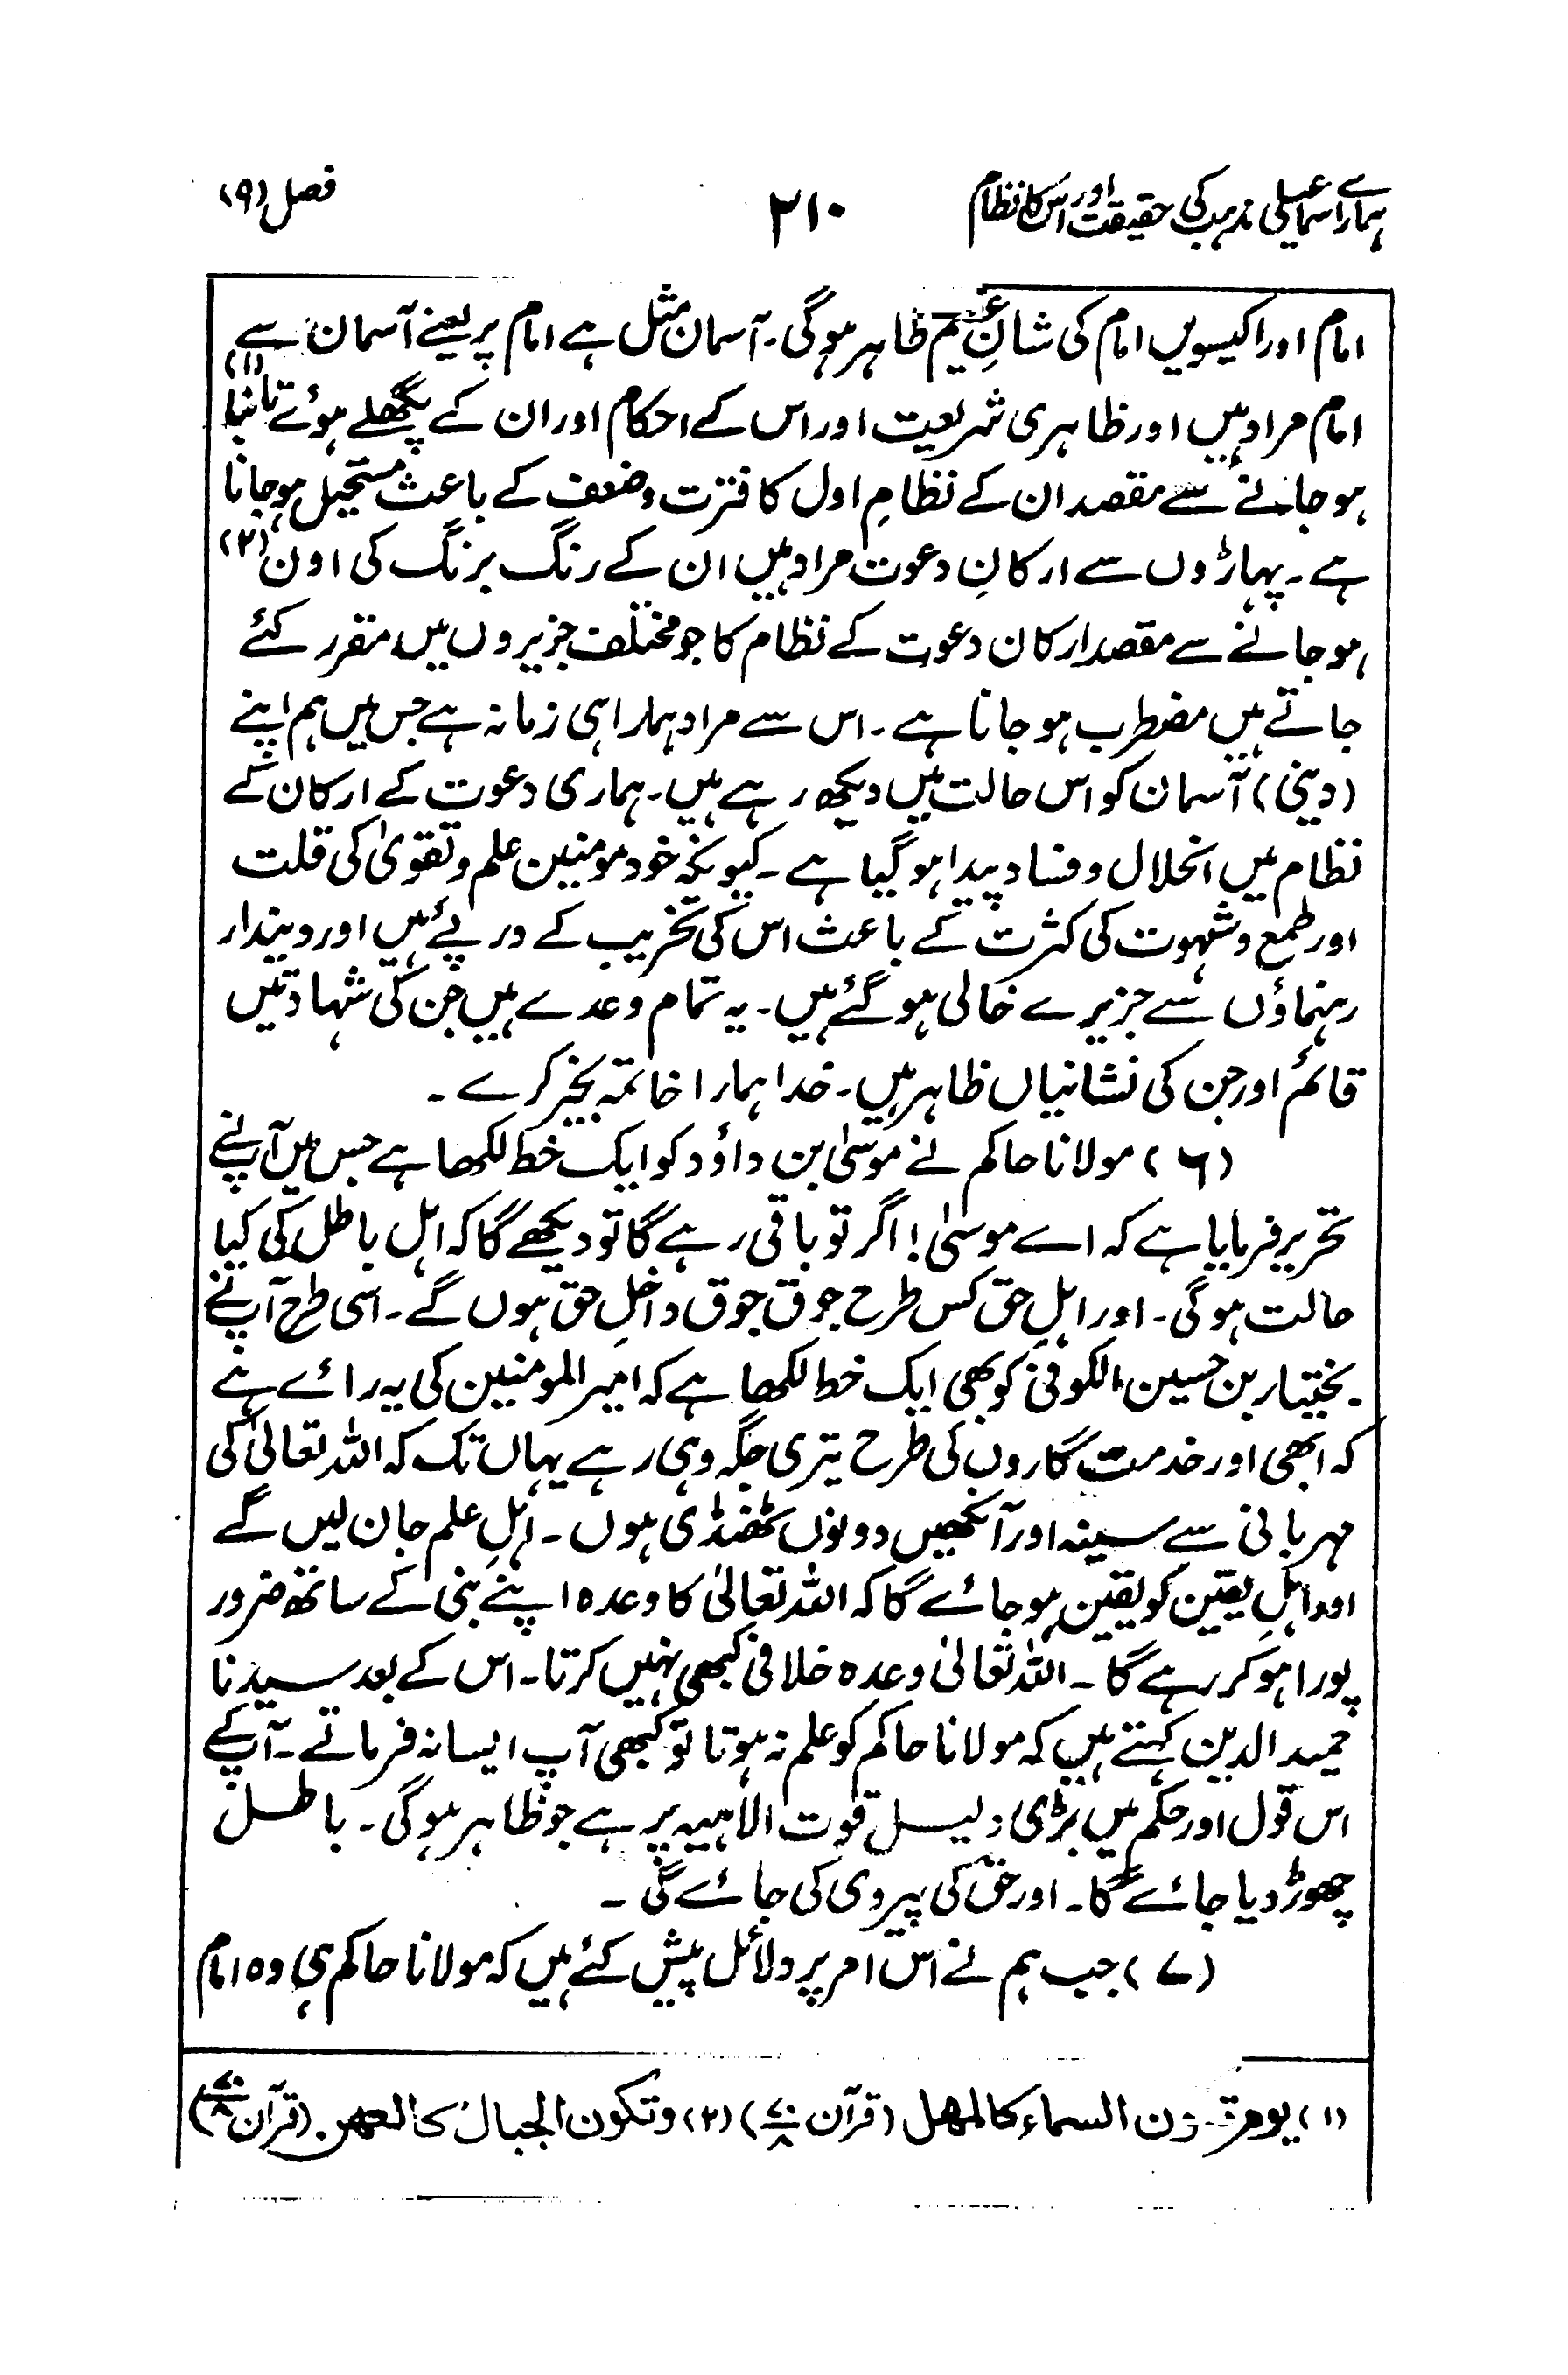 ہمارے اسماعیلی مذہب کی حقیقت اور اس کا نظام
۲۱۰
فصل (۹)
امام اور اکیسویں امام کی شانِ عظیم ظاہر ہوگی۔ آسمان مثل ہے امام پر یعنے آسمان سے
امام مراد ہیں اور ظاہری شریعت اور اس کے احکام اور ان کے پگھلے ہوئے تانبا (۱)
ہو جانے سے مقصد ان کے نظامِ اول کا فترت و ضعف کے باعث مستحیل ہو جانا
ہے۔ پہاڑوں سے ارکانِ دعوت مراد ہیں ان کے رنگ برنگ کی اون (۲)
ہو جانے سے مقصد ارکان دعوت کے نظام کا جو مختلف جزیروں میں مقرر کئے
جاتے ہیں مضطرب ہو جانا ہے۔ اس سے مراد ہمارا ہی زمانہ ہے جس میں ہم اپنے
(دینی) آسمان کو اس حالت میں دیکھ رہے ہیں۔ ہماری دعوت کے ارکان کے
نظام میں انحلال و فساد پیدا ہو گیا ہے۔ کیونکہ خود مومنین علم و تقویٰ کی قلت
اور طمع و شہوت کی کثرت کے باعث اس کی تخریب کے درپئے ہیں اور دیندار
رہنماؤں سے جزیرے خالی ہو گئے ہیں۔ یہ تمام وعدے ہیں جن کی شہادتیں
قائم اور جن کی نشانیاں ظاہر ہیں۔ خدا ہمارا خاتمہ بخیر کرے۔
(۶) مولانا حاکم نے موسیٰ بن داؤد کو ایک خط لکھا ہے جس میں آپ نے
تحریر فرمایا ہے کہ اے موسیٰ! اگر تو باقی رہے گا تو دیکھے گا کہ اہل باطل کی کیا
حالت ہوگی۔ اور اہلِ حق کس طرح جوق جوق داخلِ حق ہوں گے۔ اسی طرح آپ نے
بختیار بن حسین الکوفی کو بھی ایک خط لکھا ہے کہ امیر المومنین کی یہ رائے ہے
کہ ابھی اور خدمت گاروں کی طرح تیری جگہ وہی رہے یہاں تک کہ اللہ تعالیٰ کی
مہربانی سے سینہ اور آنکھیں دونوں ٹھنڈی ہوں۔ اہلِ علم جان لیں گے
اور اہلِ یقین کو یقین ہو جائے گا کہ اللہ تعالیٰ کا وعدہ اپنے نبی کے ساتھ ضرور
پورا ہو کر رہے گا۔ اللہ تعالیٰ وعدہ خلافی کبھی نہیں کرتا۔ اس کے بعد سیدنا
حمید الدین کہتے ہیں کہ مولانا حاکم کو علم نہ ہوتا تو کبھی آپ ایسا نہ فرماتے۔ آپ کے
اس قول اور حکم میں بڑی دلیل قوت الاہیہ پر ہے جو ظاہر ہوگی۔ باطل
چھوڑ دیا جائے گا۔ اور حق کی پیروی کی جائے گی۔
(۷) جب ہم نے اس امر پر دلائل پیش کئے ہیں کہ مولانا حاکم ہی وہ امام
(۱) یوم تکون السماء کالمهل (قرآن ۷۰/۸) (۲) وتکون الجبال کالعهن۔ (قرآن ۷۰/۸)